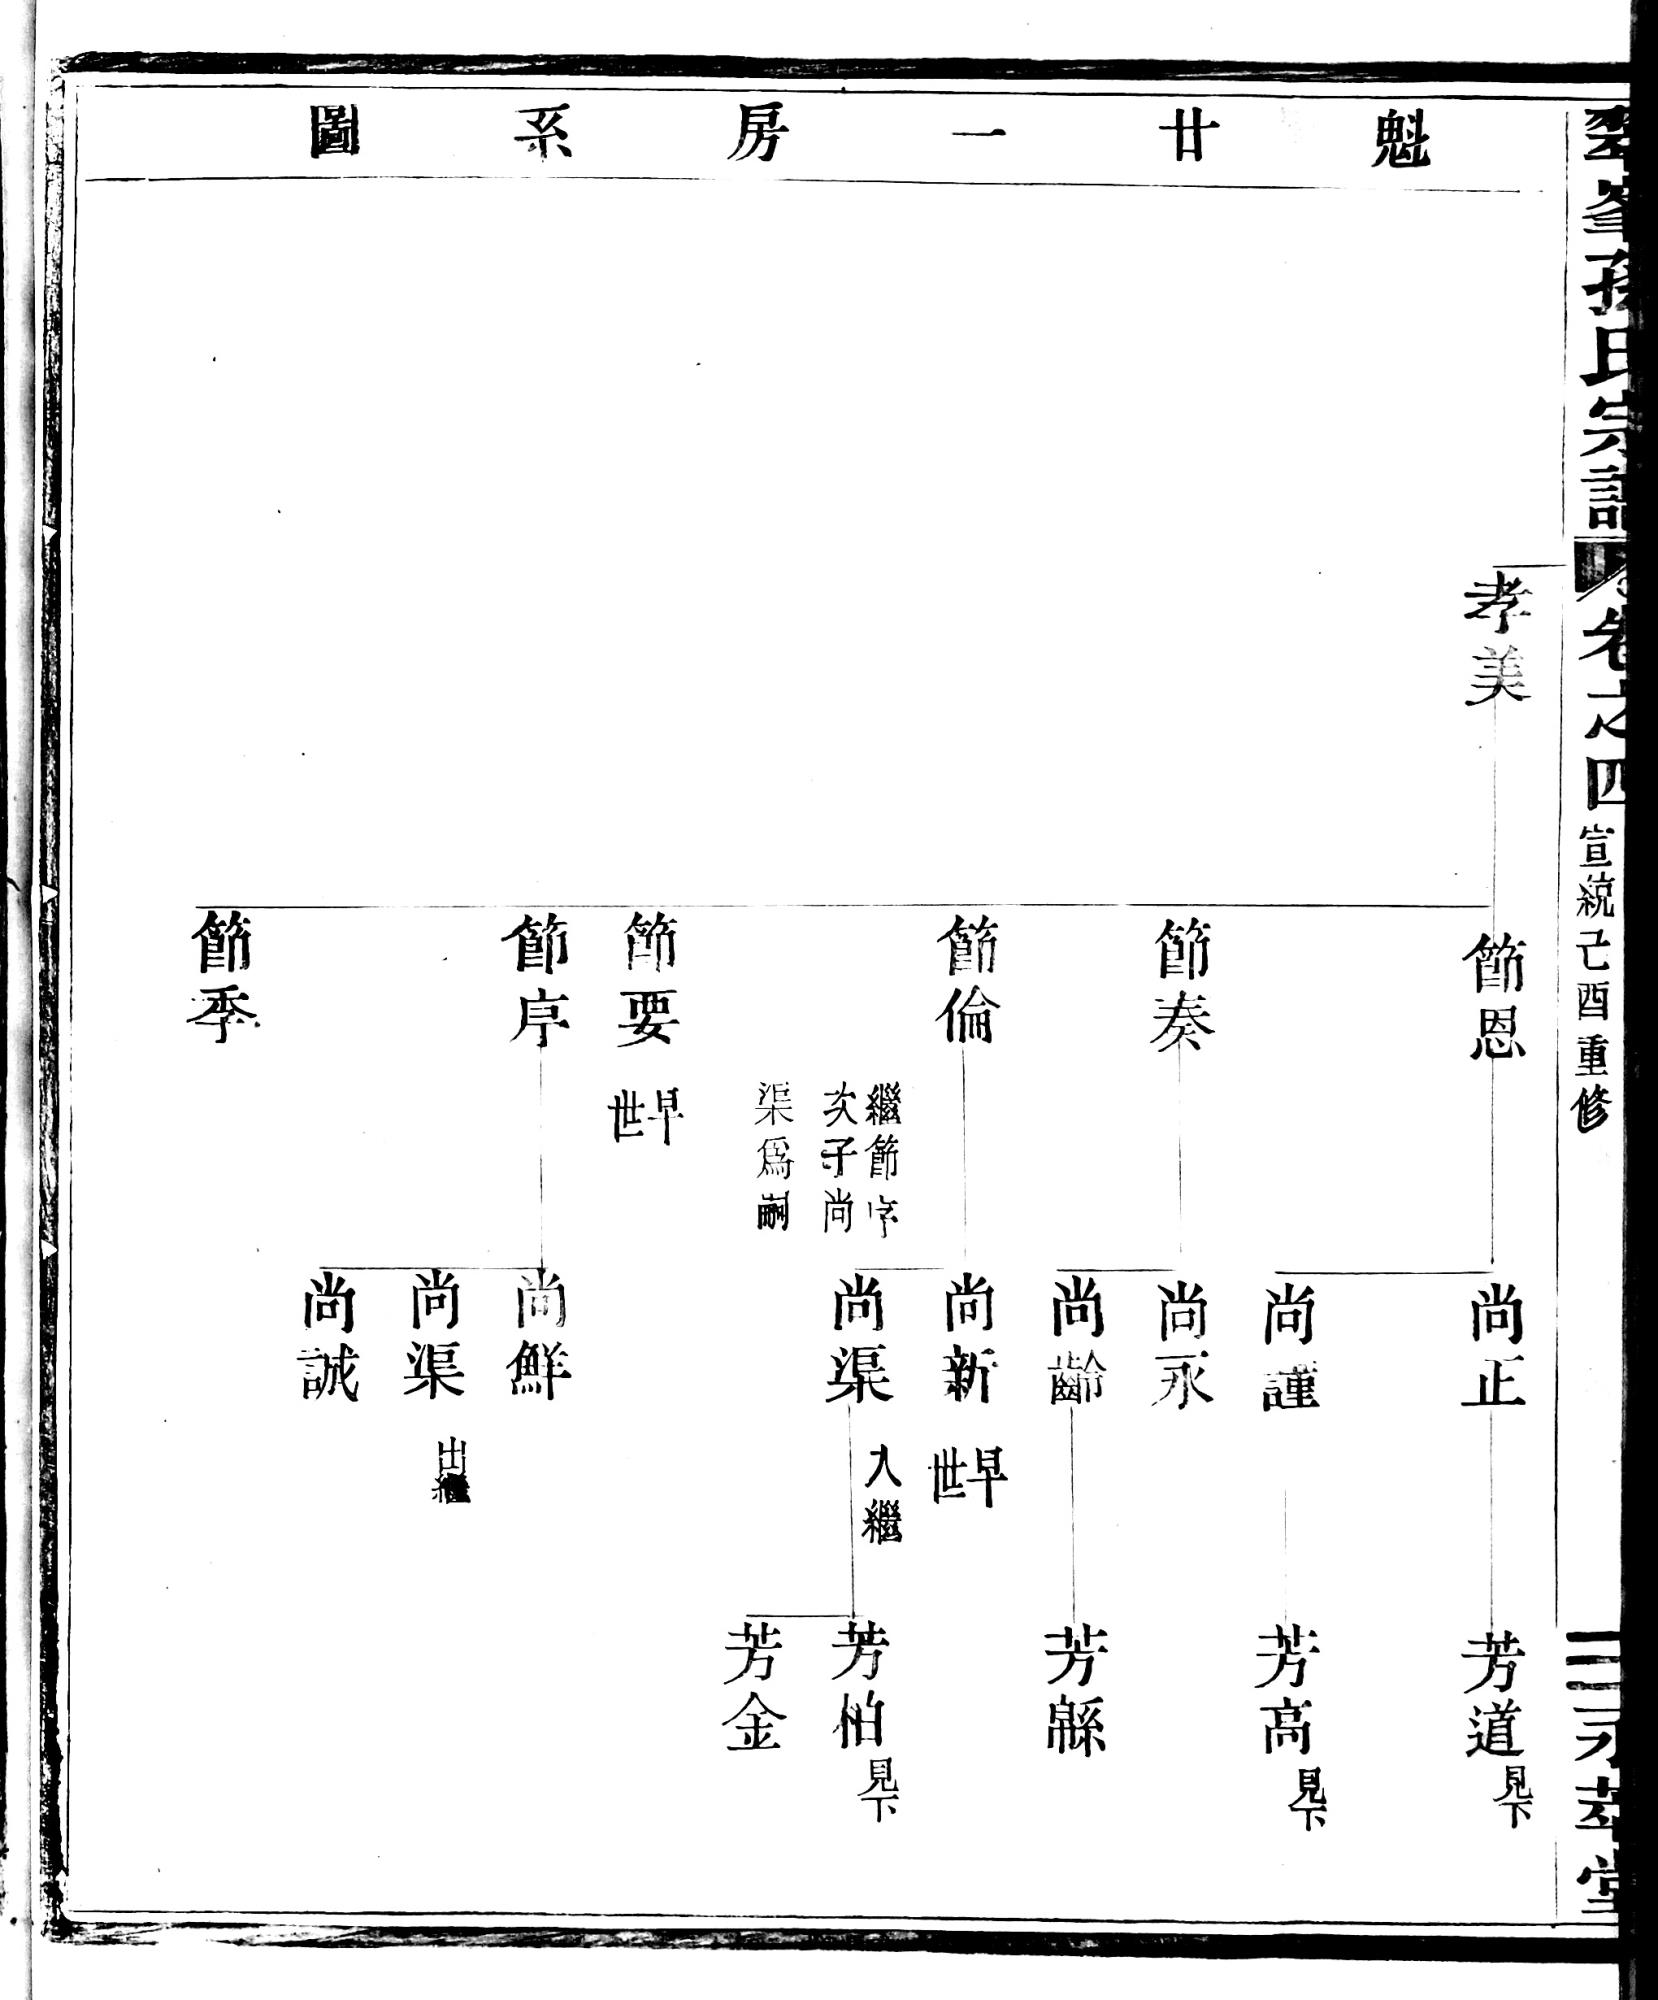 魁廿一房系圖
翠峯孫氏宗譜
卷之四
宣統己酉重修
永萃堂
孝美
節恩
節奏
節倫
繼節序
次子尚
渠爲嗣
節要
早世
節序
節季
尚正
尚謹
尚永
尚齡
尚新
早世
尚渠
入繼
尚鮮
尚渠
出繼
尚誠
芳道
見下
芳高
見下
芳緜
芳柏
見下
芳金